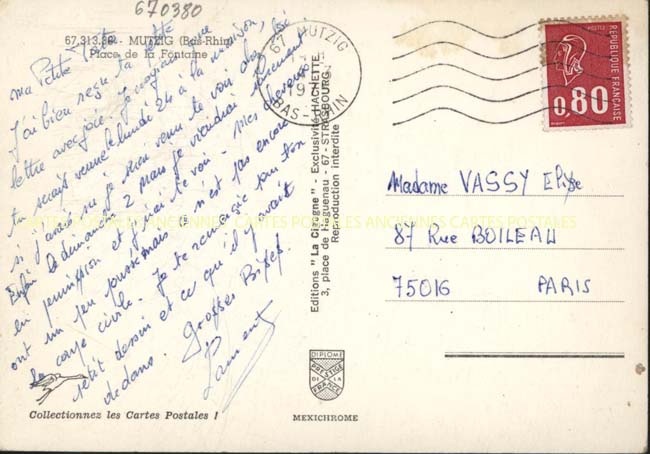 670380
67.313.80 - MUTZIG (Bas-Rhin)
Place de la Fontaine
ma Petite
J'ai bien reçu ta
lettre avec joie. J'
tu serais venue le lundi 24 à la maison,
si j'avais su je serai venu te voir chez
Enfin le dimanche 2 mars je viendrai
en permission et j'irai te voir. mes
ont un peu poussé mais ce n'est pas encore
la coupe civile. Je te remercie pour ton
petit dessin et ce qu'il y avait
dedans. Grosses Bises.
Laurent
Collectionnez les Cartes Postales !
67 MUTZIG
BAS-RHIN
Editions "La Cigogne" - Exclusivité HACHETTE
3, place de Haguenau - 67 - STRASBOURG
Reproduction interdite
DIPLOME
PRESTIGE
DE LA
FRANCE
MEXICHROME
POSTES
REPUBLIQUE FRANÇAISE
0,80
Madame VASSY Elyse
87 Rue BOILEAU
75016 PARIS
CARTES POSTALES ANCIENNES CARTES POSTALES